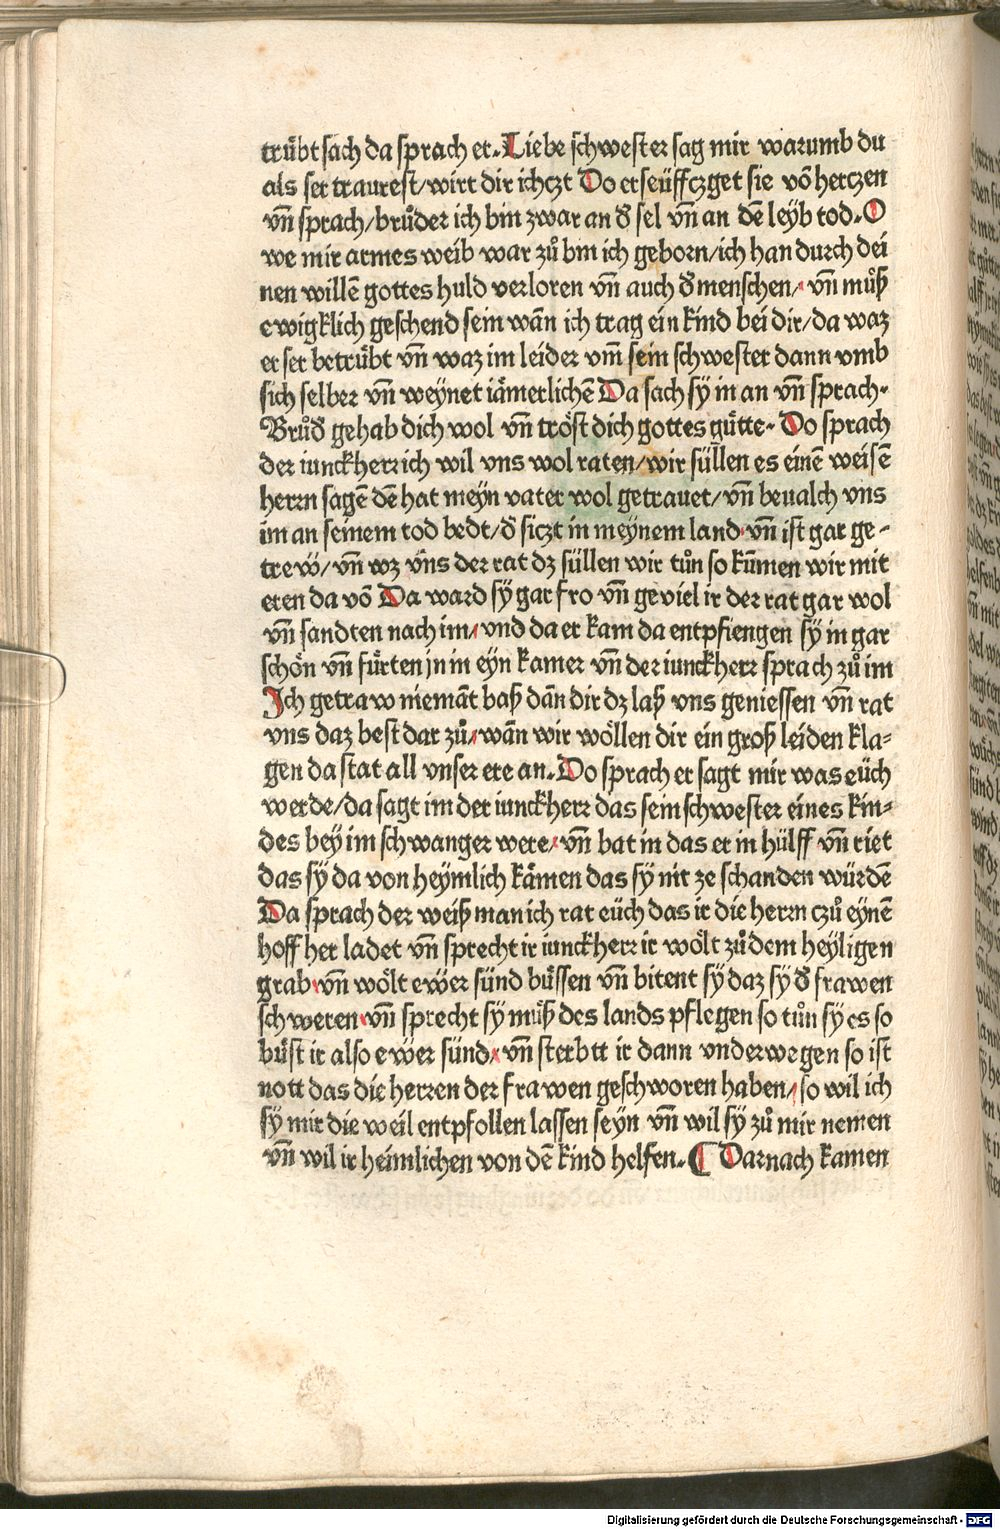 trübt sach da sprach er. Liebe schwester sag mir warumb du
als ser traurest/wirt dir ichczt Do erseüffczget sie võ herczen
vñ sprach/brůder ich bin zwar an d̕ sel vñ an dẽ leyb tod. O
we mir armes weib war zů bin ich geborn/ich han durch dei
nen willẽ gottes huld verloren vñ auch d̕ menschen/ vñ můß
ewigklich geschend sein wañ ich trag ein kind bei dir/da waz
er ser betrübt vñ waz im leider vm̃ sein schwester dann vmb
sich selber vñ weynet iämerlichẽ Da sach sy in an vñ sprach.
Brůd̕ gehab dich wol vñ tröst dich gottes gütte. Do sprach
der iunckherr ich wil vns wol raten/wir süllen es einẽ weisẽ
herrn sagẽ dẽ hat meyn vater wol getrauet/vñ beualch vns
im an seinem tod bedt/d̕ siczt in meynem land vñ ist gar ge-
trew/vñ wz vns der rat dz süllen wir tůn so kũmen wir mit
eren da võ Da ward sy gar fro vñ geviel ir der rat gar wol
vñ sandten nach im/vnd da er kam da entpfiengen sy in gar
schön vñ fürten jn in eyn kamer vñ der iunckherr sprach zů im
Ich getraw niemãt baß dañ dir dz laß vns geniessen vñ rat
vns daz best dar zů/wañ wir wöllen dir ein groß leiden kla-
gen da stat all vnser ere an. Do sprach er sagt mir was eüch
werde/da sagt im der iunckherr das sein schwester eines kin-
des bey im schwanger were/vñ bat in das er in hülff vñ riet
das sy da von heymlich kämen das sy nit ze schanden würdẽ
Da sprach der weiß man ich rat eüch das ir die herrn czů eynẽ
hoff her ladet vñ sprecht ir iunckherr ir wölt zů dem heyligen
grab vñ wölt ewer sünd büssen vñ bitent sy daz sy d̕ frawen
schweren vñ sprecht sy můß des lands pflegen so tůn sy es so
büst ir also ewer sünd/ vñ sterbtt ir dann vnderwegen so ist
nott das die herren der frawen geschworen haben/so wil ich
sy mir die weil entpfollen lassen seyn vñ wil sy zů mir nemen
vñ wil ir heimlichen von dẽ kind helfen. ¶ Darnach kamen
Digitalisierung gefördert durch die Deutsche Forschungsgemeinschaft - DFG